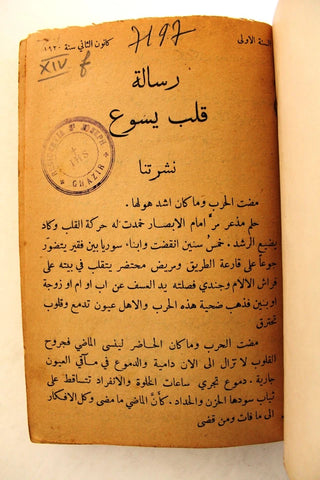 السنة الاولى
كانون الثاني سنة ١٩٢٠
7197
XIV f
رسالة
قلب يسوع
نشرتنا
IHS
GHAZIR
مضت الحرب وما كان اشد هولها.
حلم مذعر مرَّ امام الابصار خمدت له حركة القلب وكاد
يضيع الرشد. خمسُ سنين انقضت وابناء سوريا بين فقير يتضوّر
جوعاً على قارعة الطريق ومريض محتضر يتقلب في بيته على
فراش الالام وجندي فصلته يد العسف عن اب او ام او زوجة
او بنين فذهب ضحية هذه الحرب والاهل عيون تدمع وقلوب
تحترق
مضت الحرب وما كان الحاضر لينسي الماضي فجروح
القلوب لا تزال الى الان دامية والدموع في مآقي العيون
جارية. دموع تجري ساعات الخلوة والانفراد تتساقط على
ثياب سودها الحزن والحداد. كأنَّ الماضي ما مضى وكل الافكار
الى ما فات ومن قضى